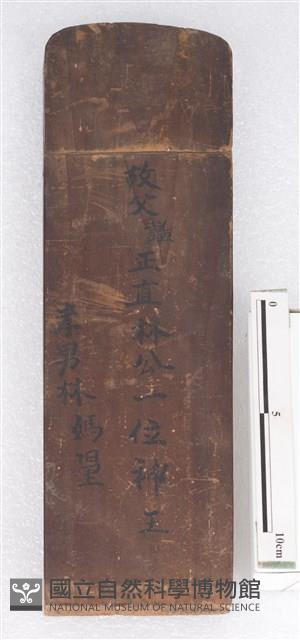 故父諡正直林公一位神主
孝男林媽望
0
5
10cm
國立自然科學博物館
NATIONAL MUSEUM OF NATURAL SCIENCE